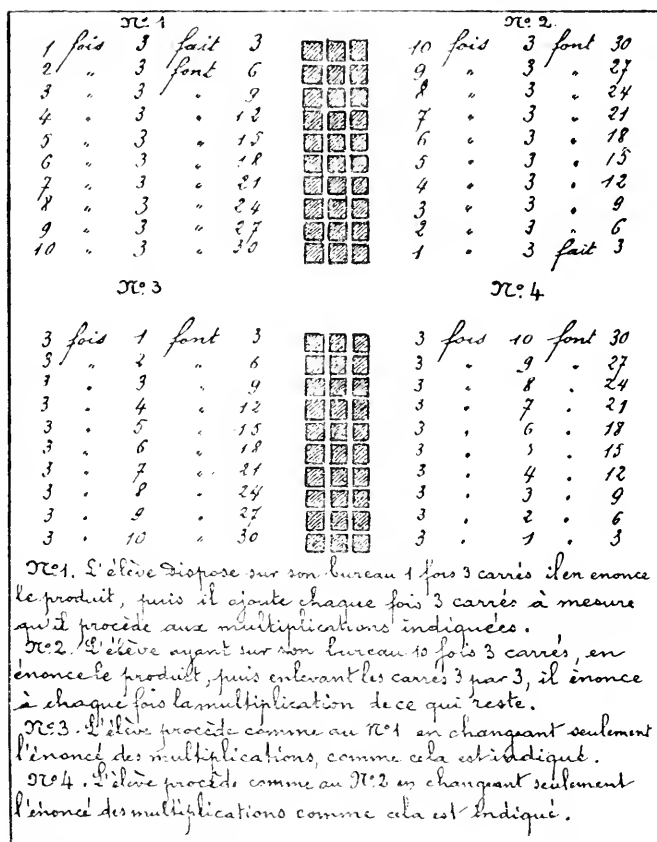 Nº 1
1 fois 3 fait 3
2 " 3 font 6
3 " 3 " 9
4 " 3 " 12
5 " 3 " 15
6 " 3 " 18
7 " 3 " 21
8 " 3 " 24
9 " 3 " 27
10 " 3 " 30
Nº 2.
10 fois 3 font 30
9 " 3 " 27
8 " 3 " 24
7 " 3 " 21
6 " 3 " 18
5 " 3 " 15
4 " 3 " 12
3 " 3 " 9
2 " 3 " 6
1 " 3 fait 3
Nº 3
3 fois 1 font 3
3 " 2 " 6
3 " 3 " 9
3 " 4 " 12
3 " 5 " 15
3 " 6 " 18
3 " 7 " 21
3 " 8 " 24
3 " 9 " 27
3 " 10 " 30
Nº 4
3 fois 10 font 30
3 " 9 " 27
3 " 8 " 24
3 " 7 " 21
3 " 6 " 18
3 " 5 " 15
3 " 4 " 12
3 " 3 " 9
3 " 2 " 6
3 " 1 " 3
Nº 1. L'élève dispose sur son bureau 1 fois 3 carrés il en enonce
le produit, puis il ajoute chaque fois 3 carrés à mesure
qu'il procède aux multiplications indiquées.
Nº 2. L'élève ayant sur son bureau 10 fois 3 carrés, en
énonce le produit, puis enlevant les carrés 3 par 3, il énonce
à chaque fois la multiplication de ce qui reste.
Nº 3. L'élève procède comme au Nº 1 en changeant seulement
l'énoncé des multiplications, comme cela est indiqué.
Nº 4. L'élève procède comme au Nº 2 en changeant seulement
l'énoncé des multiplications comme cela est indiqué.